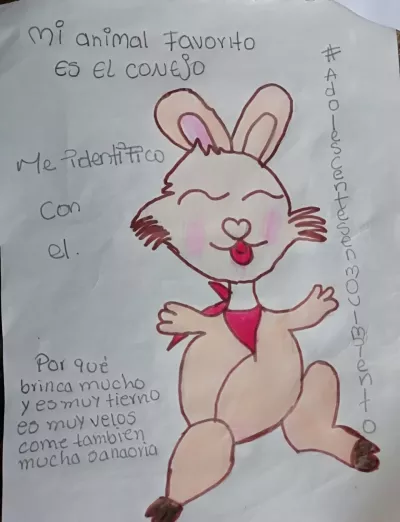 mi animal Favorito
ES EL CONEJO
Me identifico
con
el.
Por qué
brinca mucho
y es muy tierno
es muy velos
come tambien
mucha sanaoria
#Adolescentesenmovimiento